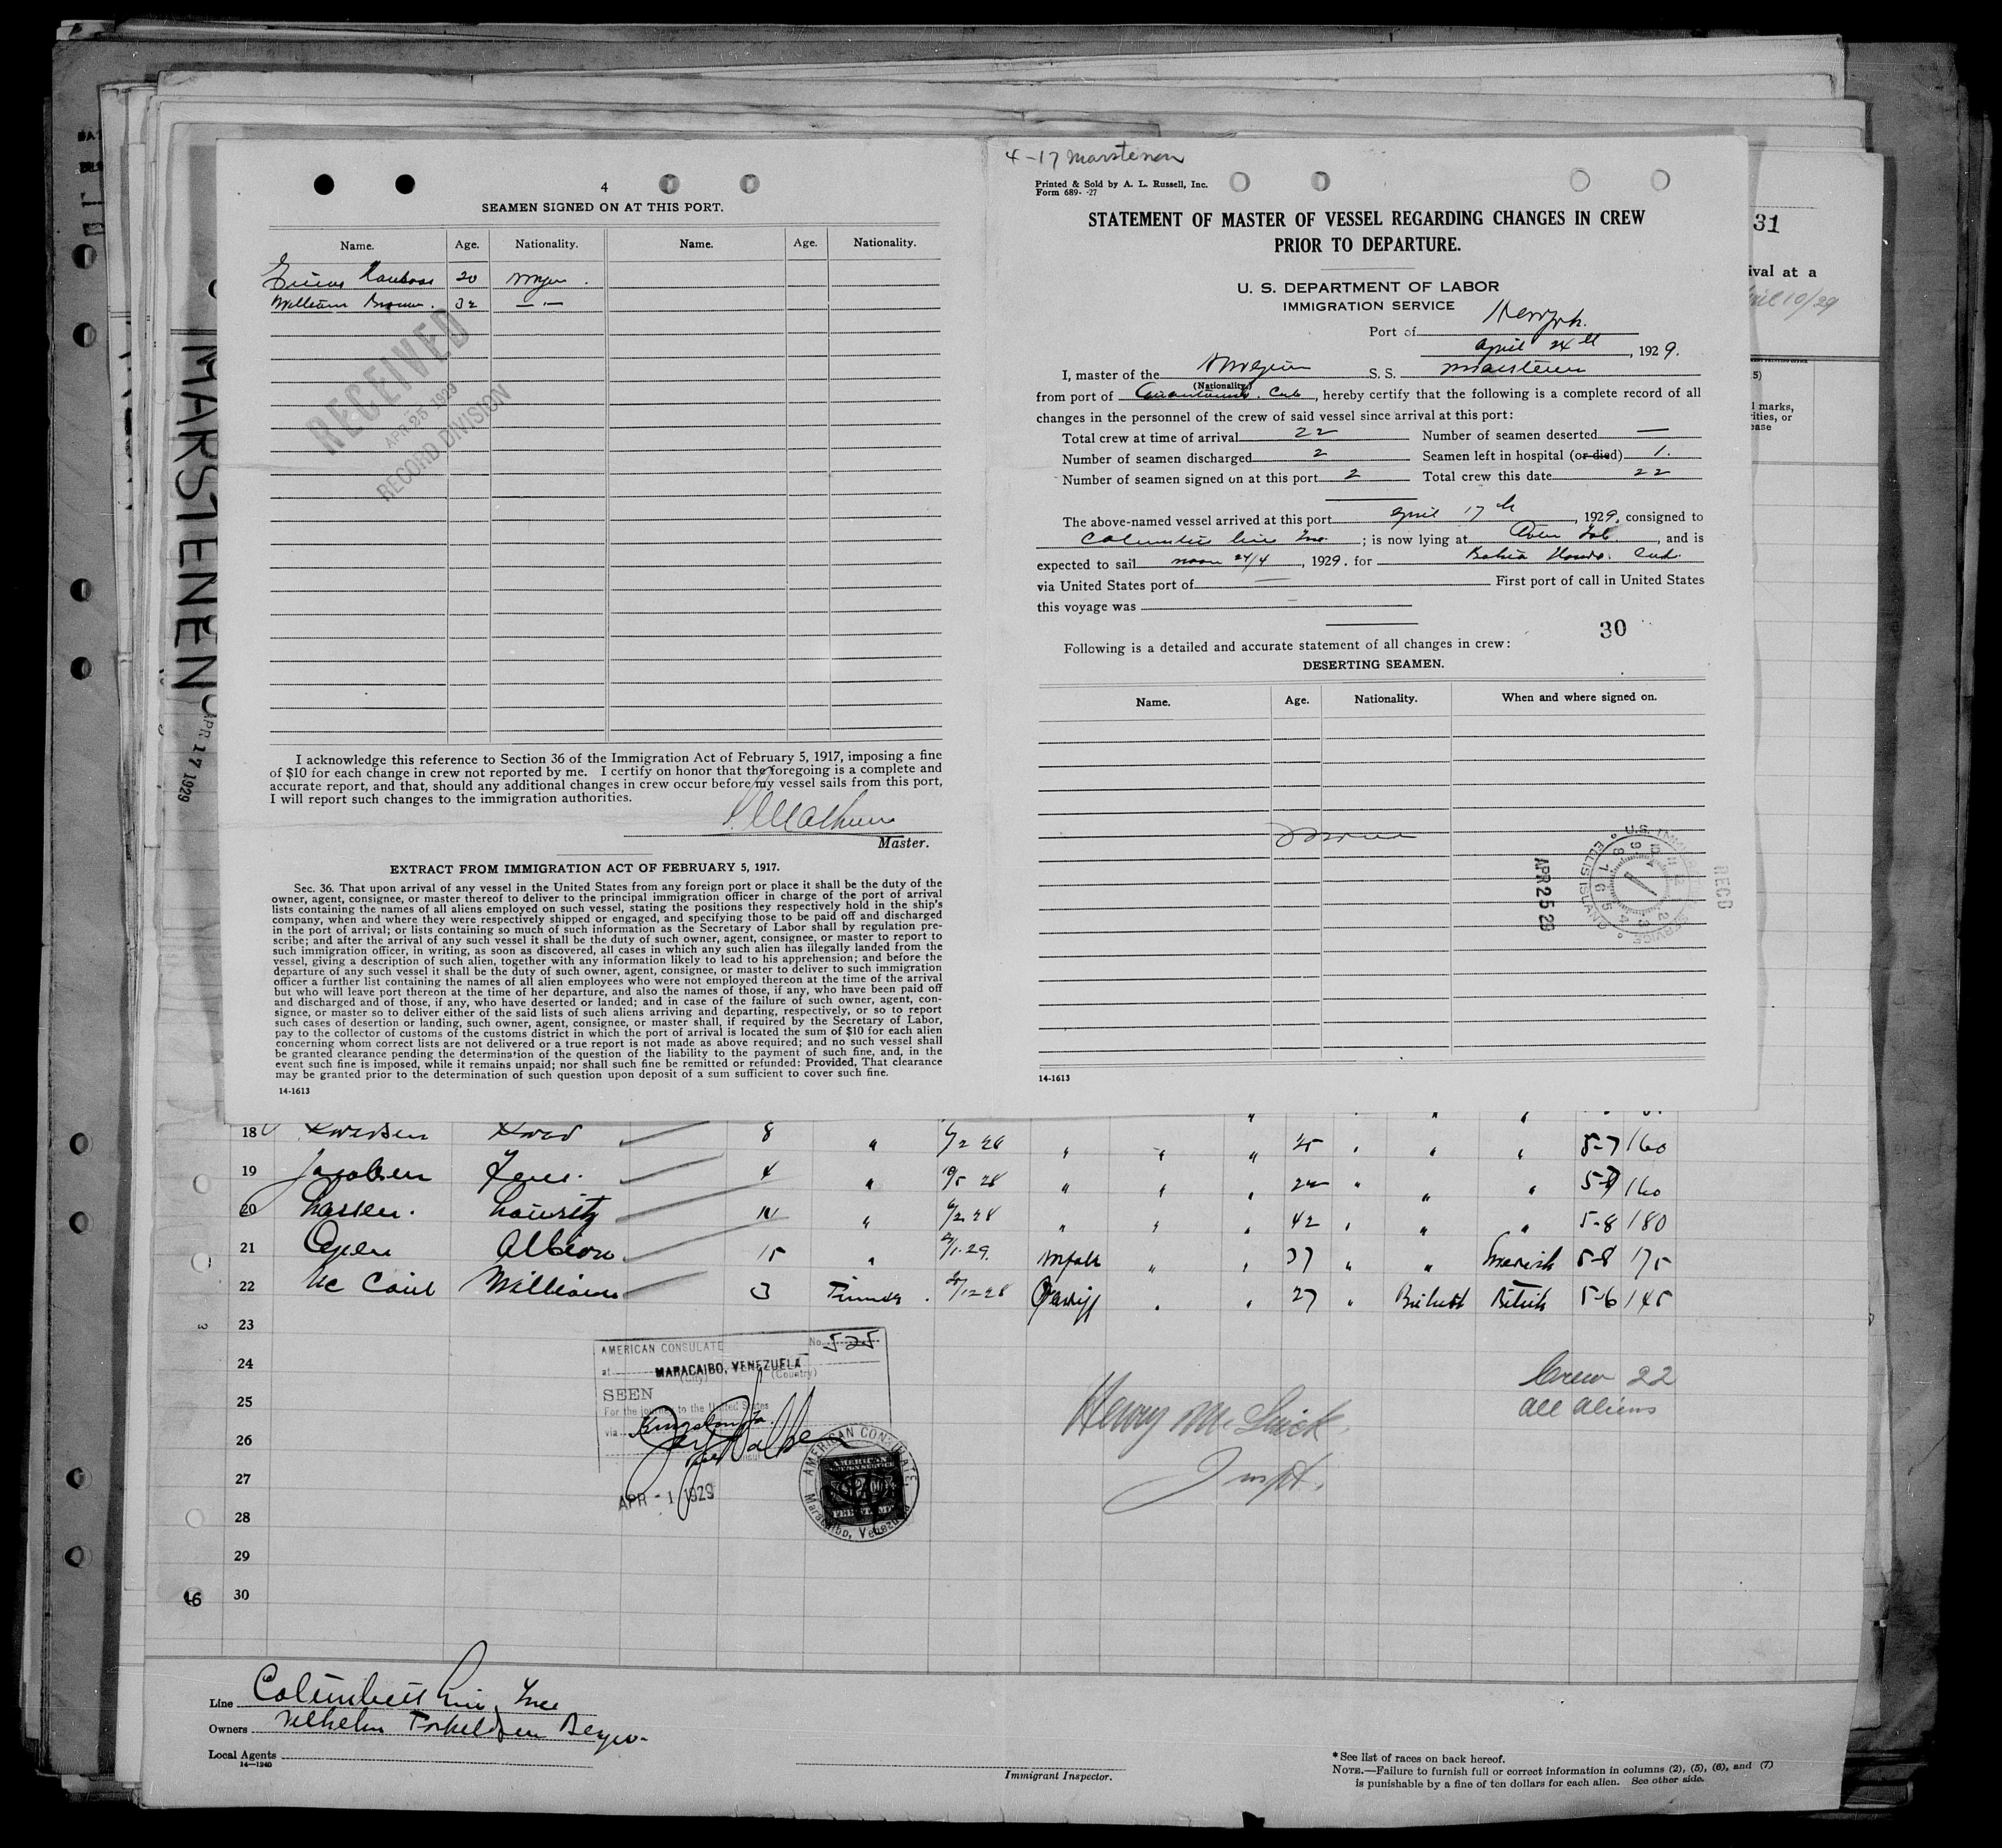 4
SEAMEN SIGNED ON AT THIS PORT.
Name. Age. Nationality. Name. Age. Nationality.
20
William Brown. 32 —"—
RECEIVED
APR 25 1929
RECORD DIVISION
I acknowledge this reference to Section 36 of the Immigration Act of February 5, 1917, imposing a fine
of $10 for each change in crew not reported by me. I certify on honor that the foregoing is a complete and
accurate report, and that, should any additional changes in crew occur before my vessel sails from this port,
I will report such changes to the immigration authorities.
Master.
EXTRACT FROM IMMIGRATION ACT OF FEBRUARY 5, 1917.
Sec. 36. That upon arrival of any vessel in the United States from any foreign port or place it shall be the duty of the
owner, agent, consignee, or master thereof to deliver to the principal immigration officer in charge of the port of arrival
lists containing the names of all aliens employed on such vessel, stating the positions they respectively hold in the ship's
company, when and where they were respectively shipped or engaged, and specifying those to be paid off and discharged
in the port of arrival; or lists containing so much of such information as the Secretary of Labor shall by regulation pre-
scribe; and after the arrival of any such vessel it shall be the duty of such owner, agent, consignee, or master to report to
such immigration officer, in writing, as soon as discovered, all cases in which any such alien has illegally landed from the
vessel, giving a description of such alien, together with any information likely to lead to his apprehension; and before the
departure of any such vessel it shall be the duty of such owner, agent, consignee, or master to deliver to such immigration
officer a further list containing the names of all alien employees who were not employed thereon at the time of the arrival
but who will leave port thereon at the time of her departure, and also the names of those, if any, who have been paid off
and discharged and of those, if any, who have deserted or landed; and in case of the failure of such owner, agent, con-
signee, or master so to deliver either of the said lists of such aliens arriving and departing, respectively, or so to report
such cases of desertion or landing, such owner, agent, consignee, or master shall, if required by the Secretary of Labor,
pay to the collector of customs of the customs district in which the port of arrival is located the sum of $10 for each alien
concerning whom correct lists are not delivered or a true report is not made as above required; and no such vessel shall
be granted clearance pending the determination of the question of the liability to the payment of such fine, and, in the
event such fine is imposed, while it remains unpaid; nor shall such fine be remitted or refunded: Provided, That clearance
may be granted prior to the determination of such question upon deposit of a sum sufficient to cover such fine.
14-1613
4-17 Marstenen
Printed & Sold by A. L. Russell, Inc.
Form 689- -27
STATEMENT OF MASTER OF VESSEL REGARDING CHANGES IN CREW
PRIOR TO DEPARTURE.
U. S. DEPARTMENT OF LABOR
IMMIGRATION SERVICE
Port of
April 24th, 1929.
I, master of the S. S. Marstenen
(Nationality)
from port of , hereby certify that the following is a complete record of all
changes in the personnel of the crew of said vessel since arrival at this port:
Total crew at time of arrival 22 Number of seamen deserted —
Number of seamen discharged 2 Seamen left in hospital (or died) 1.
Number of seamen signed on at this port 2 Total crew this date 22
The above-named vessel arrived at this port April 17th, 1929, consigned to
; is now lying at , and is
expected to sail noon 24/4, 1929. for
via United States port of — First port of call in United States
this voyage was —
30
Following is a detailed and accurate statement of all changes in crew:
DESERTING SEAMEN.
Name. Age. Nationality. When and where signed on.
None
U.S. IMMIGRATION SERVICE ELLIS ISLAND
APR 25 29
REC'D
14-1613
31
ival at a
April 10/29
5)
l marks,
ities, or
ease
MARSTENEN
APR 17 1929
18 8 " 25 5-7 160
19 Jacobsen 4 " 24 160
20 Larsen. Lauritz " 42 5-8 180
21 15 " 37 5-8 175
22 William 3 27 British 5-6 145
23
24
25
26
27
28
29
30
16
AMERICAN CONSULATE No. 525
at MARACAIBO, VENEZUELA
(City) (Country)
SEEN
For the journey to the United States
via Kingston Ja.
APR - 1 1929
AMERICAN CONSULATE
Maracaibo, Venezuela
Crew 22
All aliens
Inspt.
Line Columbus Line, Inc
Owners
Local Agents
14—1240
Immigrant Inspector.
* See list of races on back hereof.
NOTE.—Failure to furnish full or correct information in columns (2), (5), (6), and (7)
is punishable by a fine of ten dollars for each alien. See other side.